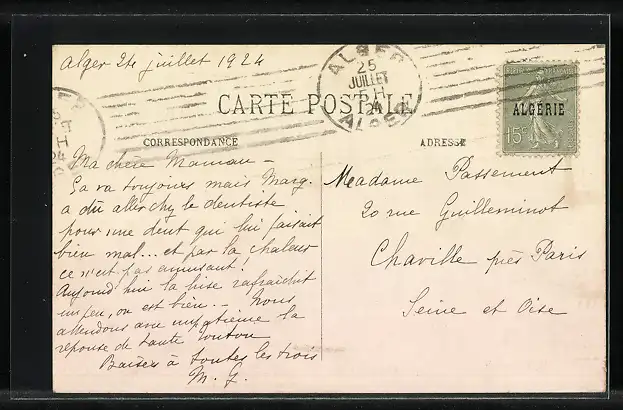 Alger 24 juillet 1924
ALGER
25
JUILLET
24
ALGER
CARTE POSTALE
RÉPUBLIQUE FRANÇAISE
ALGÉRIE
15c
CORRESPONDANCE
ADRESSE
Ma chère Maman –
Ça va toujours mais Marg.
a dû aller chez le dentiste
pour une dent qui lui faisait
bien mal... et par la chaleur
ce n'est pas amusant!
Aujourd'hui la bise rafraîchit
un peu, on est bien. – Nous
attendons avec impatience la
réponse de tante
Baisers à toutes les trois
M. G.
Madame Passement
20 rue Guilleminot
Chaville près Paris
Seine et Oise